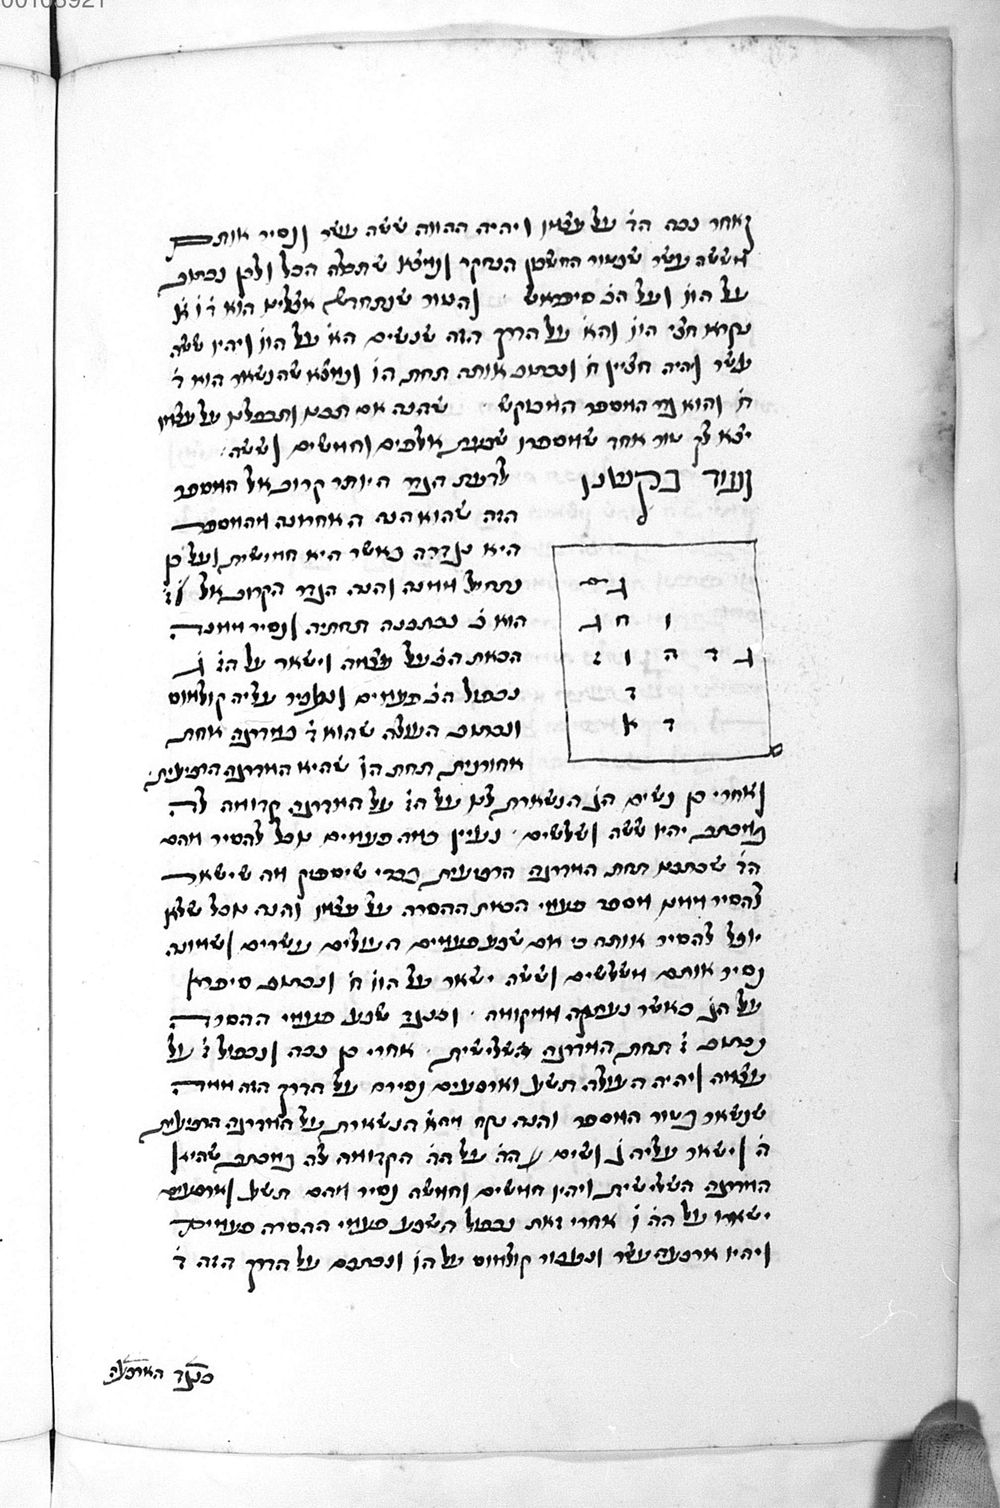 00103921
ואחר נכה הד' על עצמו ויהיה ההווה ששה עשר ונסיר אותם
מששה עשר שבטור החשבון הנחקר ונמצא שתכלה הכל ולכן נכתוב
על הו' ועל הב' סיפראש והטור שנתחדש אצלינו הוא ד' ו' א'
נקרא חצי הו' והא' על הדרך הזה שנשים הא' על הו' ויהיו ששה
עשר ויהיה חציין ח' ונכתוב אותה תחת הו' ונמצא שהנשאר הוא ד'
ח' והוא גדר המספר המבוקש שהנה אם תכם ותכפלם על עצמו
יצא לך טור אחד שמספרו שבעת אלפים וחמשים וששה
ועוד בקשנו לדעת הגדר היותר קרוב אל המספר
הזה שהוא הנה האחרונה מהמספר
היא נגדרה כאשר היא חמישית ועל כן
נתחיל ממנה והנה הגדר הקרוב אל ז'
הוא ב' נכתבנה תחתיה ונסיר ממנה
הכאת הב' על עצמה וישאר על הז' ג'
נכפול הב' פעמים ונעביר עליה קולמוס
ונכתוב העולה שהוא ד' במדרגה אחת
אחורנית תחת הו' שהיא המדרגה הרביעית
ג ס
ו ח ג
ג ד ה ו ז
ד
ד א
ואחרי כן נשים הג' הנשארת לנו על הז' על המדרגה קדומה לה
במכתב יהיו ששה ושלשים נעיין כמה פעמים נוכל להסיר מהם
הד' שכתבנו תחת המדרגה הרביעית בכדי שיספוק מה שישאר
להסיר ממנו מספר פעמי הכאת ההסרה על עצמו והנה נוכל שלא
יוכל להסיר אותה כי אם שבע פעמים העולים עשרים ושמונה
נסיר אותם משלשים וששה ישאר על הו' ח' ונכתוב סיפרא
על הג' כאשר נעתקה ממקומה ובנגד שבע פעמי ההסרה
נכתוב ז' תחת המדרגה השלישית אחרי כן נכה ונכפול ז' על
עצמה ויהיה העולה תשע וארבעים נסירם על הדרך הזה ממה
שנשאר בטור המספר והנה נקח מהח' הנשארת על המדרגה הרביעית
ה' וישאר עליה ג' ושים הה' על הה' הקדומה לה במכתב שהיא
המדרגה השלישית ויהיו חמשים וחמשה נסיר מהם תשע וארבעים
ישארו על הה' ו' אחרי זאת נכפול השבע פעמי ההסרה פעמים
ויהיו ארבעה עשר ונעביר קולמוס על הז' ונכתבם על הדרך הזה ד'
בנגד הארבעה